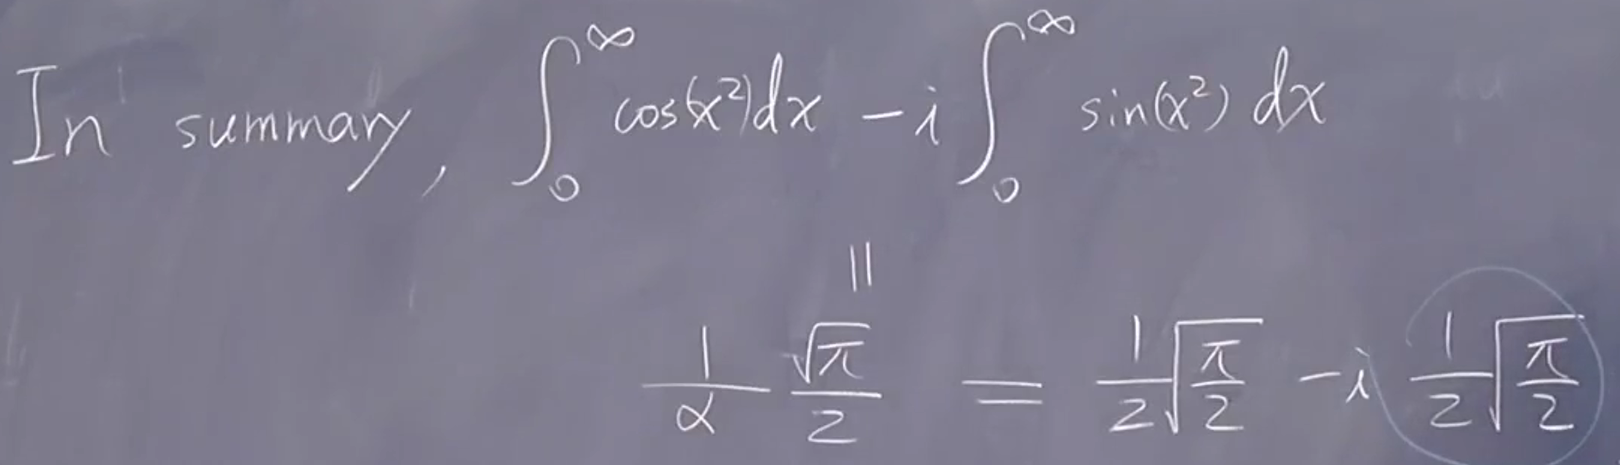 In summary, ∫₀^∞ cos(x²)dx − i ∫₀^∞ sin(x²) dx
||
1/α √π/2 = 1/2 √(π/2) − i 1/2 √(π/2)